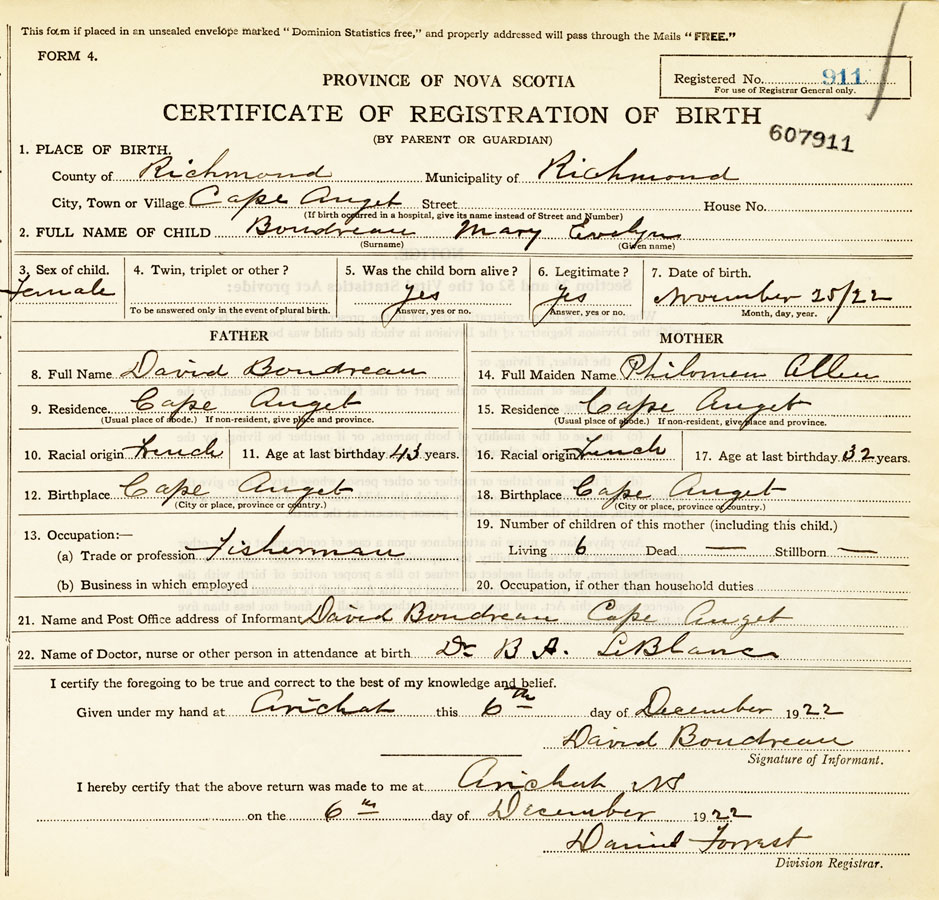 This form if placed in an unsealed envelope marked "Dominion Statistics free," and properly addressed will pass through the Mails "FREE."
FORM 4.
PROVINCE OF NOVA SCOTIA
Registered No. 911
For use of Registrar General only.
CERTIFICATE OF REGISTRATION OF BIRTH
607911
(BY PARENT OR GUARDIAN)
1. PLACE OF BIRTH.
County of Richmond Municipality of Richmond
City, Town or Village Cape Auget Street House No.
(If birth occurred in a hospital, give its name instead of Street and Number)
2. FULL NAME OF CHILD Boudreau Mary Evelyn
(Surname) (Given name)
3. Sex of child. Female
4. Twin, triplet or other?
To be answered only in the event of plural birth.
5. Was the child born alive? Yes
Answer, yes or no.
6. Legitimate? Yes
Answer, yes or no.
7. Date of birth. November 25/22
Month, day, year.
FATHER
8. Full Name David Boudreau
9. Residence. Cape Auget
(Usual place of abode.) If non-resident, give place and province.
10. Racial origin French 11. Age at last birthday 43 years.
12. Birthplace Cape Auget
(City or place, province or country.)
13. Occupation:—
(a) Trade or profession Fisherman
(b) Business in which employed
MOTHER
14. Full Maiden Name Philomen Allen
15. Residence Cape Auget
(Usual place of abode.) If non-resident, give place and province.
16. Racial origin French 17. Age at last birthday. 32 years.
18. Birthplace Cape Auget
(City or place, province or country.)
19. Number of children of this mother (including this child.)
Living 6 Dead — Stillborn —
20. Occupation, if other than household duties
21. Name and Post Office address of Informant David Boudreau Cape Auget
22. Name of Doctor, nurse or other person in attendance at birth Dr B A. LeBlanc
I certify the foregoing to be true and correct to the best of my knowledge and belief.
Given under my hand at Arichat this 6th day of December 1922
David Boudreau
Signature of Informant.
I hereby certify that the above return was made to me at Arichat NS
on the 6th day of December 1922
Daniel Forrest
Division Registrar.